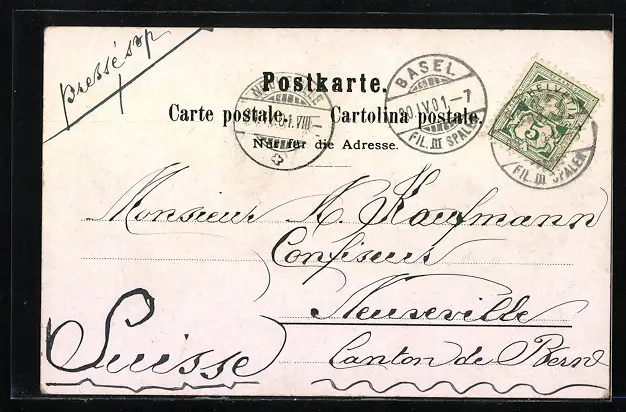 pressé svp
Postkarte.
Carte postale. Cartolina postale.
Nur für die Adresse.
BASEL
20.IV.01.–7
FIL. III SPALEN
01.VIII–
HELVETIA
5
FIL. III SPALEN
Monsieur A. Kaufmann
Confiseur
Neuveville
Suisse
Canton de Bern